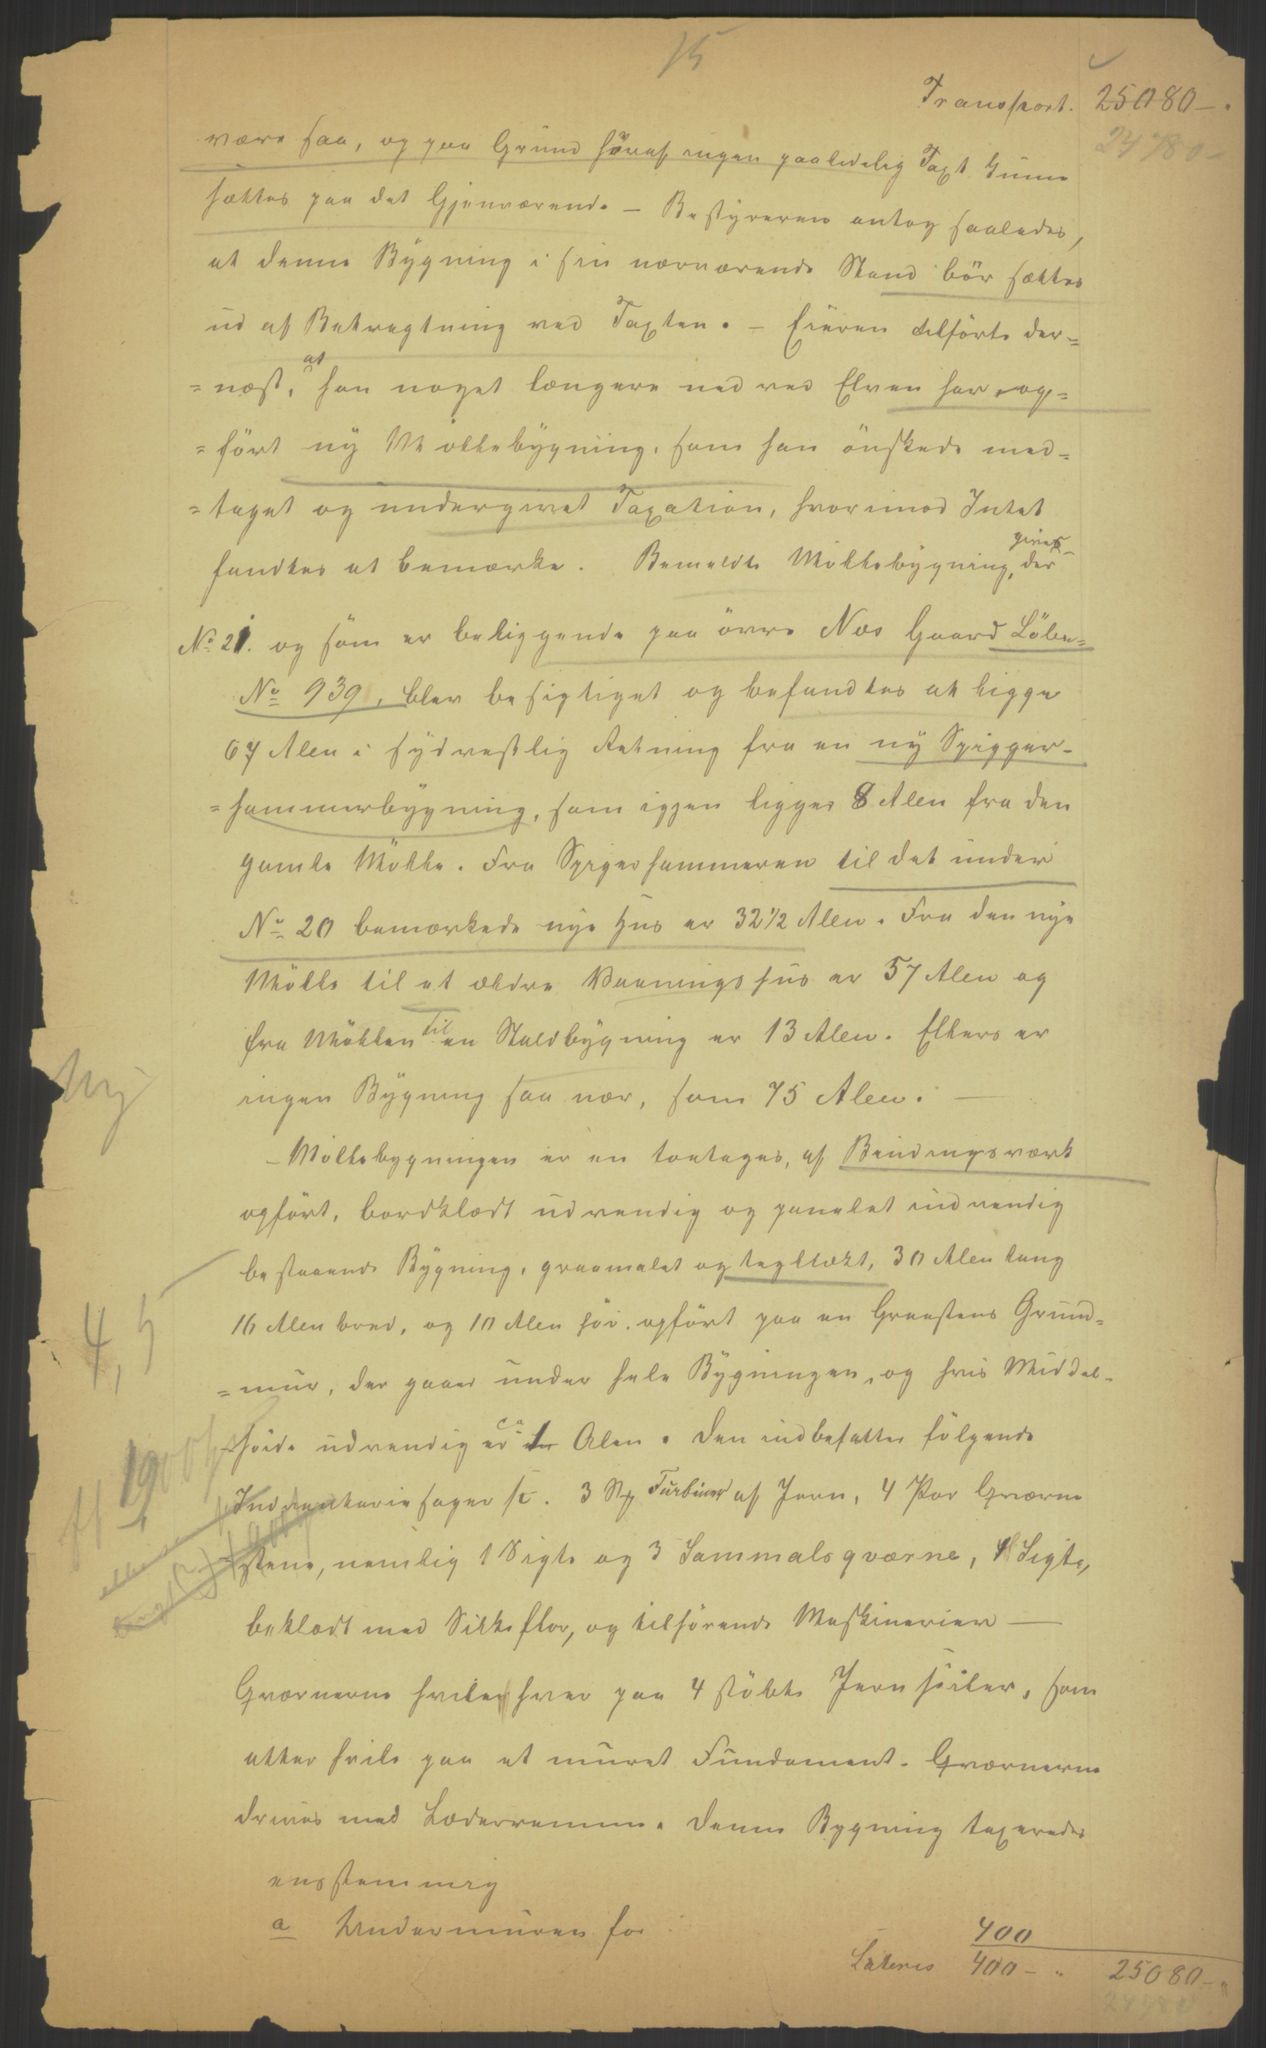 15
Transport. 25080 –
24780 –
være saa, og paa Grund heraf ingen paalidelig Taxt kunne
sættes paa det Gjenværende – Bestyreren antog saaledes,
at denne Bygning i sin nærværende Stand bör sættes
ud af Betragtning ved Taxten. – Eieren tilförte der=
=næst, at han noget længere ned ved Elven har op=
=fört ny Möllebygning, som han önskede med=
=taget og undergivet Taxation, hvorimod Intet
fandtes at bemærke. Bemeldte Möllebygning, der gives
No 21. og som er beliggende paa övre Næs Gaard Löbe=
No 939, blev besigtiget og befandtes at ligge
67 Alen i sydvestlig Retning fra en ny Spiger-
=hammerbygning, som igjen ligger 8 Alen fra den
gamle Mölle. Fra Spigerhammeren til det under
No 20 bemærkede nye Hus er 32 1/2 Alen. Fra den nye
Mölle til et ældre Vaaningshus er 57 Alen og
fra Möllen til en Staldbygning er 13 Alen. Ellers er
Ny
ingen Bygning saa nær, som 75 Alen. –
– Möllebygningen er en toetages, af Bindingsværk
opfört, bordklædt udvendig og panelet indvendig
bestaaende Bygning, graamalet og teglttækt, 30 Alen lang
4,5
16 Alen bred, og 10 Alen höi, opfört paa en Graastens Grund=
=mur, der gaaer under hele Bygningen, og hvis Middel=
höide udvendig er ca 1 Alen. Den indbefatter fölgende
Inventariesager sc. 3 Stk Turbiner af Jern, 4 Par Qværne
stene, nemlig 1 Sigte og 3 Sammalsqværne, 1 Sigte,
beklædt med Silkeflor, og tilhörende Maskinerier –
Qværnerne hviler hver paa 4 stöbte Jernsöiler, som
atter hvile paa et muret Fundament. Qværnerne
drives med Læderremme. Denne Bygning taxeredes
eensstemmig
a Undermuren for 400
Lateris 400 – " 25080 – "